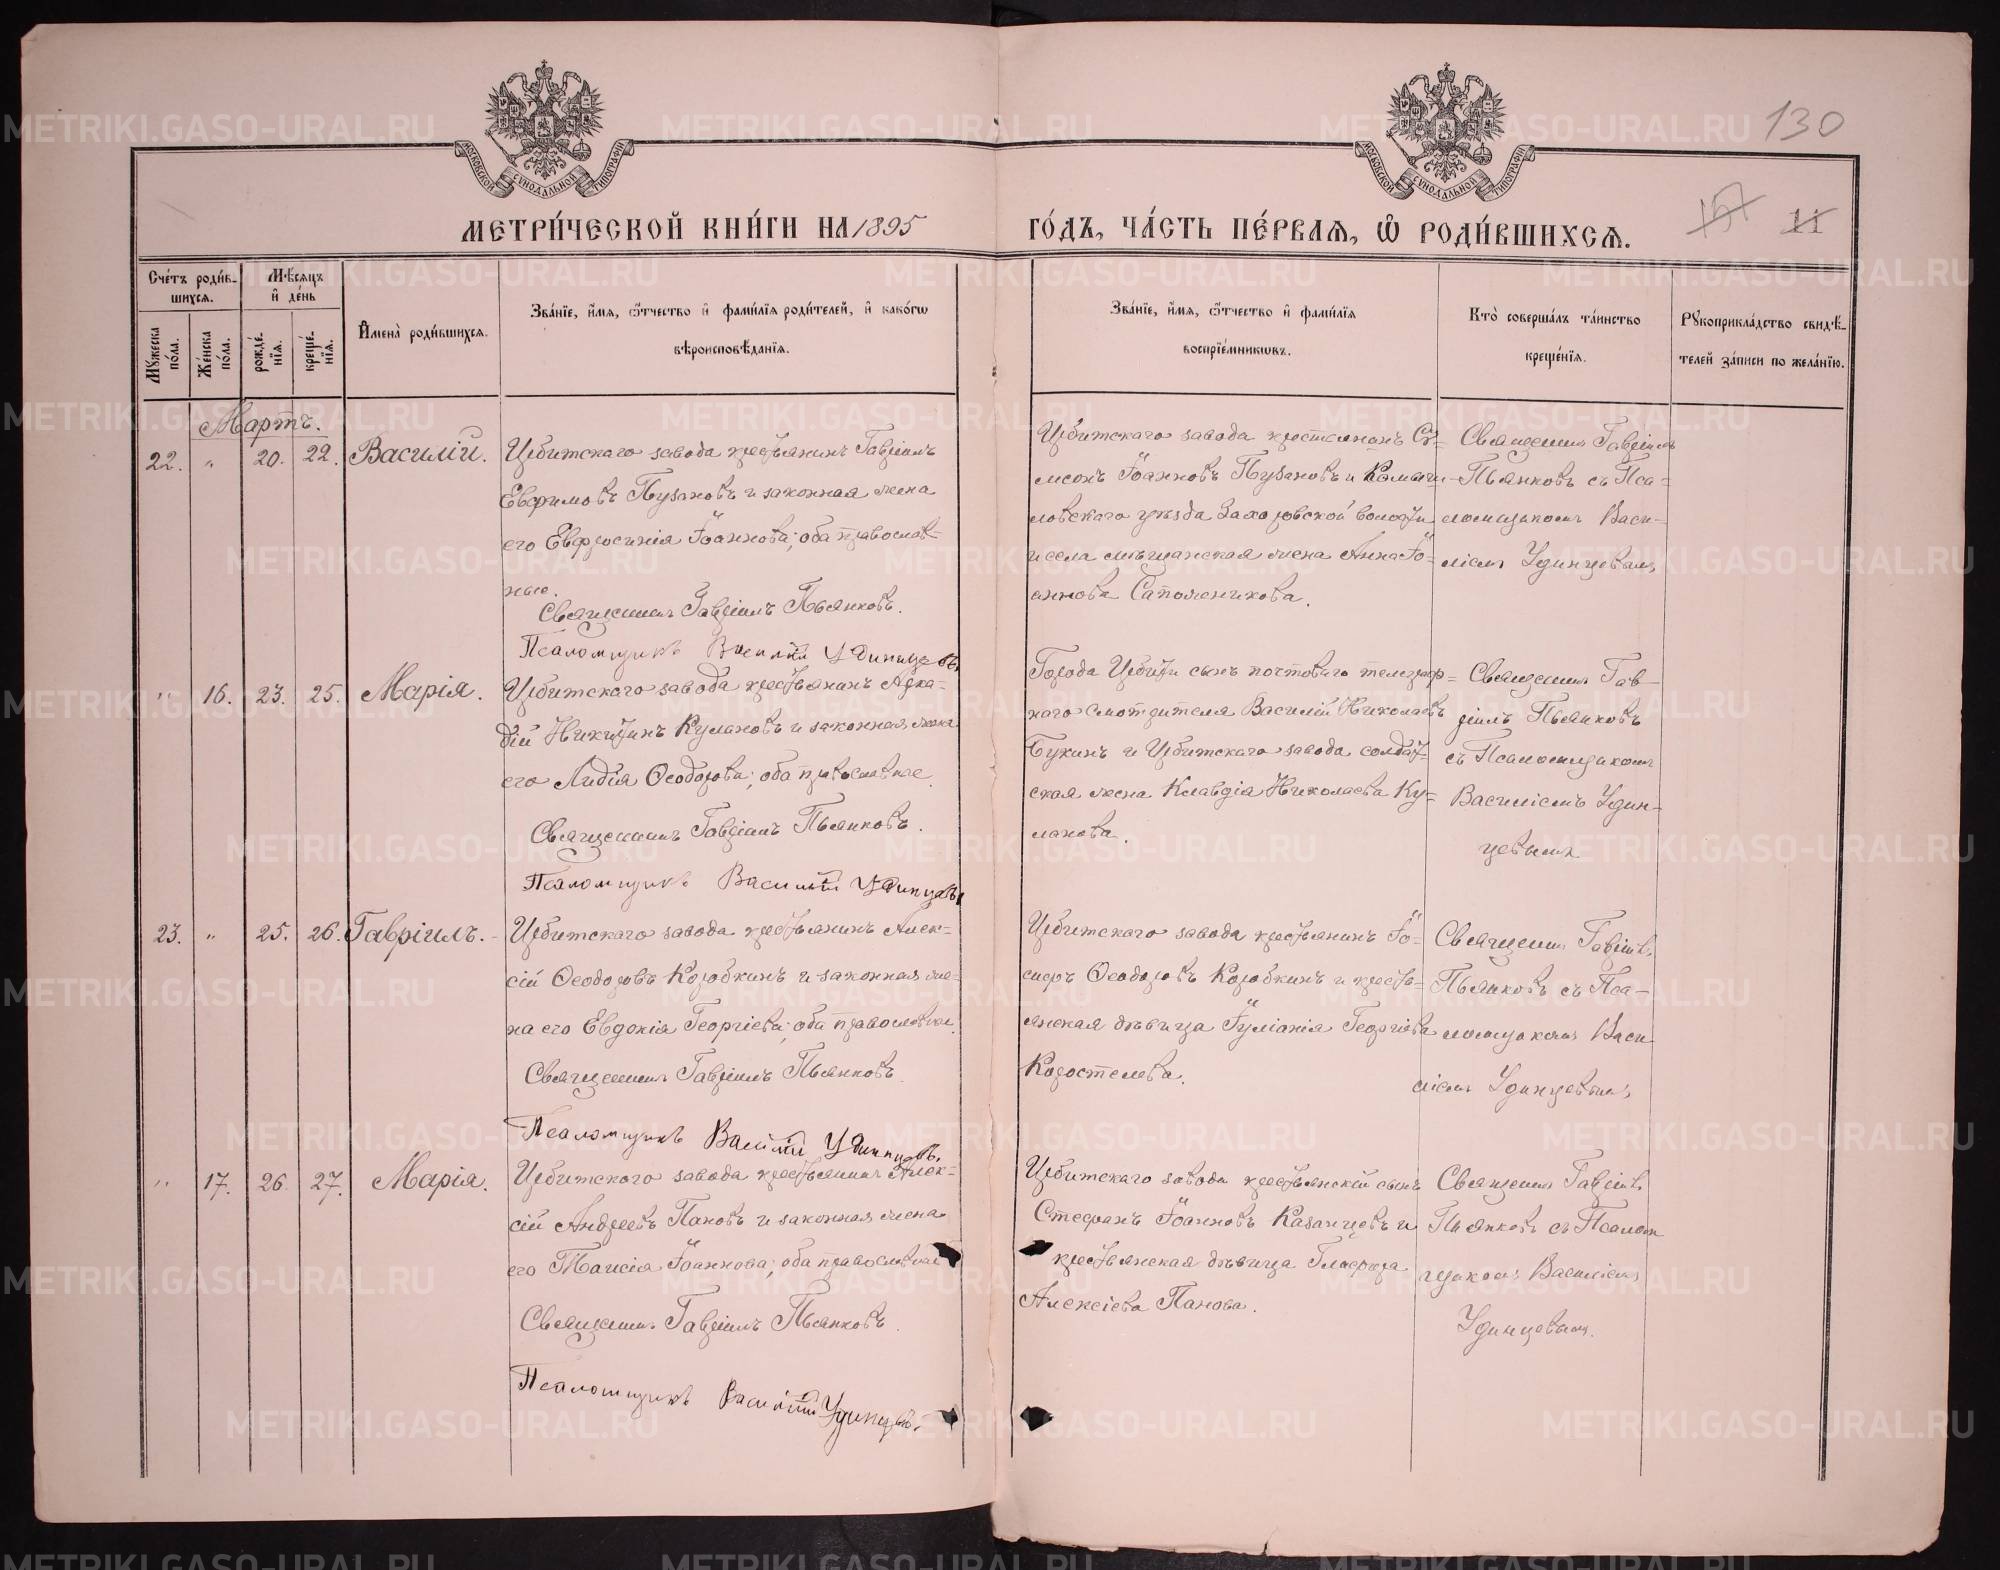 130
МЕТРИ́ЧЕСКОЙ КНИ́ГИ НА 1895
ГО́ДЪ, ЧА́СТЬ ПЕ́РВАѦ, Ѡ҆ РОДИ́ВШИХСѦ.
11
МОСКОВСКОЙ СѴНОДАЛЬНОЙ ТИПОГРАФІИ
МОСКОВСКОЙ СѴНОДАЛЬНОЙ ТИПОГРАФІИ
Сче́тъ роди́в-
шихсѧ.
Мѣ́сѧцъ
и҆ де́нь
Мꙋ́жеска
по́ла.
Же́нска
по́ла.
рожде́-
нїѧ.
креще́-
нїѧ.
И҆мена̀ роди́вшихсѧ.
Зва́нїе, и҆́мѧ, ѻ҆́тчество и҆ фами́лїѧ роди́телей, и҆ како́гѡ
вѣроисповѣ́данїѧ.
Зва́нїе, и҆́мѧ, ѻ҆́тчество и҆ фами́лїѧ
воспрїе́мникѡвъ.
Кто̀ соверша́лъ та́инство
креще́нїѧ.
Рꙋкоприкла́дство свидѣ́-
телей за́писи по жела́нїю.
Мартъ.
22. " 20. 22. Василій.
Ирбитскаго завода крестьянинъ Гавріилъ
Евфимовъ Пузановъ и законная жена
его Евфросинія Іоаннова; оба православ-
ные.
Священникъ Гавріилъ Пьянковъ.
Псаломщикъ Василій Удинцевъ
Ирбитскаго завода крестьянинъ Си-
меонъ Іоанновъ Пузановъ и Камыш-
ловскаго уѣзда Захаровской волости
и села мѣщанская жена Анна Іо-
аннова Сапожникова.
Священникъ Гавріилъ
Пьянковъ съ Пса-
ломщикомъ Васи-
ліемъ Удинцевымъ
" 16. 23. 25. Марія.
Ирбитскаго завода крестьянинъ Арка-
дій Никитинъ Кулаковъ и законная жена
его Лидія Ѳеодорова; оба православные
Священникъ Гавріилъ Пьянковъ.
Псаломщикъ Василій Удинцевъ
Города Ирбити сынъ почтоваго телеграф-
наго смотрителя Василій Николаевъ
Букинъ и Ирбитскаго завода солдат-
ская жена Клавдія Николаева Ку-
лакова.
Священникъ Гав-
ріилъ Пьянковъ
съ Псаломщикомъ
Василіемъ Удин-
цевымъ
23. " 25. 26. Гавріилъ.
Ирбитскаго завода крестьянинъ Алек-
сій Ѳеодоровъ Коробкинъ и законная же-
на его Евдокія Георгіева; оба православные.
Священникъ Гавріилъ Пьянковъ
Псаломщикъ Василій Удинцевъ.
Ирбитскаго завода крестьянинъ Іо-
сифъ Ѳеодоровъ Коробкинъ и кресть-
янская дѣвица Іуліанія Георгіева
Коростелева.
Священникъ Гавріилъ
Пьянковъ съ Пса-
ломщикомъ Васи-
ліемъ Удинцевымъ
" 17. 26. 27. Марія.
Ирбитскаго завода крестьянинъ Алек-
сій Андреевъ Пановъ и законная жена
его Таисія Іоаннова; оба православные
Священникъ Гавріилъ Пьянковъ.
Псаломщикъ Василій Удинцевъ.
Ирбитскаго завода крестьянскій сынъ
Стефанъ Іоанновъ Казанцевъ и
крестьянская дѣвица Глафира
Алексіева Панова.
Священникъ Гавріилъ
Пьянковъ съ Псалом-
щикомъ Василіемъ
Удинцевымъ.
METRIKI.GASO-URAL.RU